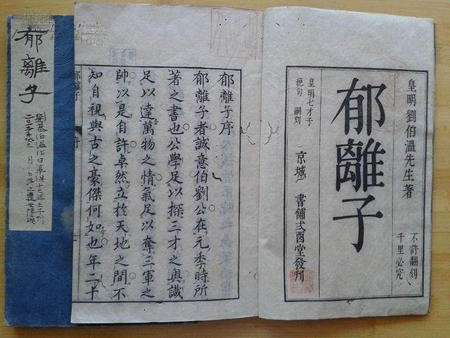 皇明劉伯溫先生著
不許翻刻
千里必究
郁離子
皇明七才子
京城 書鋪式酉堂發刊
郁離子序
郁離子者誠意伯劉公在元季時所
著之書也公學足以探三才之奧識
足以達萬物之情氣足以奪三軍之
帥以是自許卓然立於天地之間不
知自視與古之豪傑何如也年二十
郁離子
郁離子